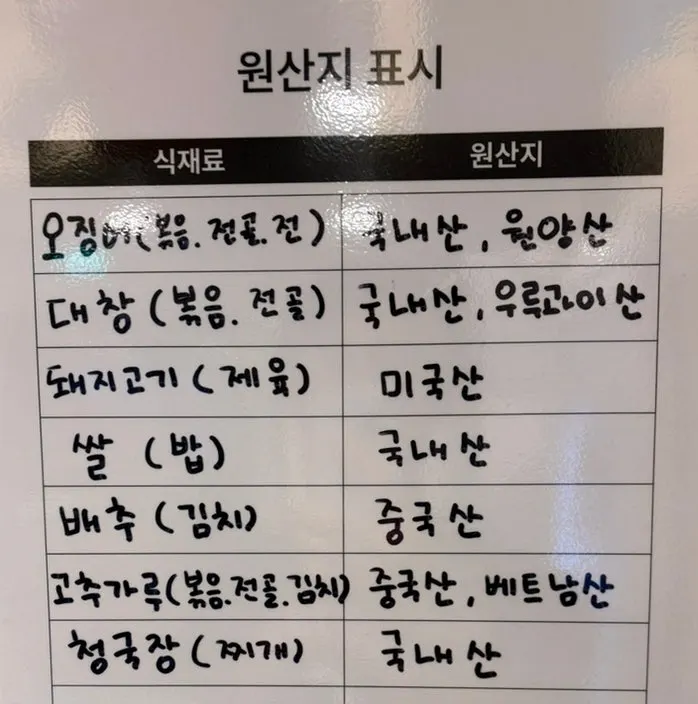 원산지 표시
식재료 원산지
오징어(볶음.전골.전) 국내산, 원양산
대창(볶음.전골) 국내산, 우루과이산
돼지고기(제육) 미국산
쌀(밥) 국내산
배추(김치) 중국산
고추가루(볶음.전골.김치) 중국산, 베트남산
청국장(찌개) 국내산